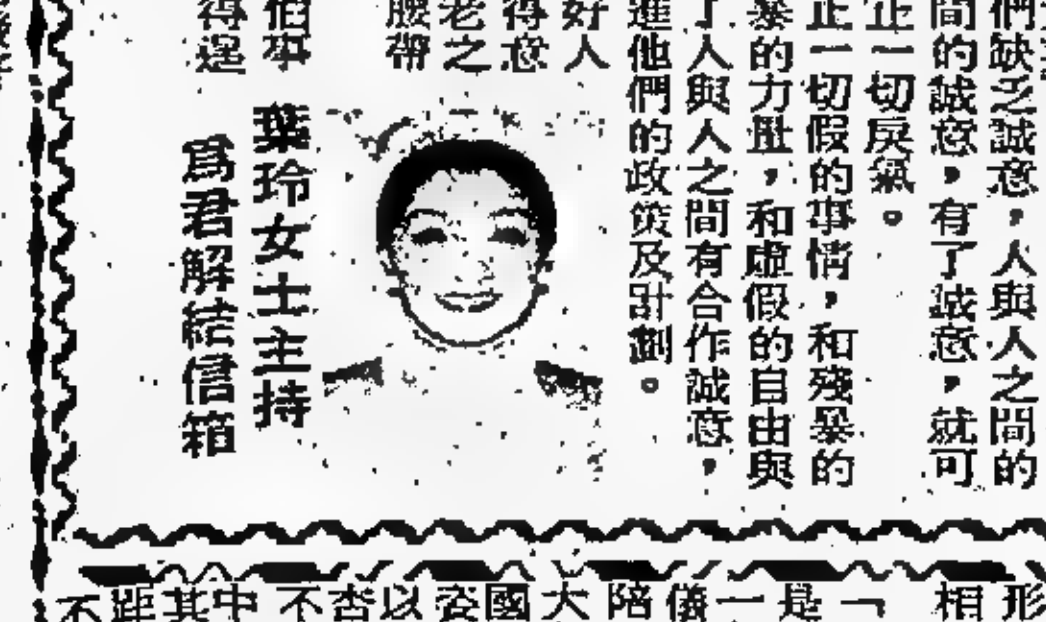 們缺乏誠意，人與人之間的
間的誠意，有了誠意，就可
止一切戾氣。
正一切假的事情，和殘暴的
暴的力量，和虛假的自由與
了人與人之間有合作誠意，
進他們的政策及計劃。
好人
得意
老之
腰帶
葉玲女士主持
爲君解結信箱
得逞
形相
「是一儀陪大國姿以杏不中其距不